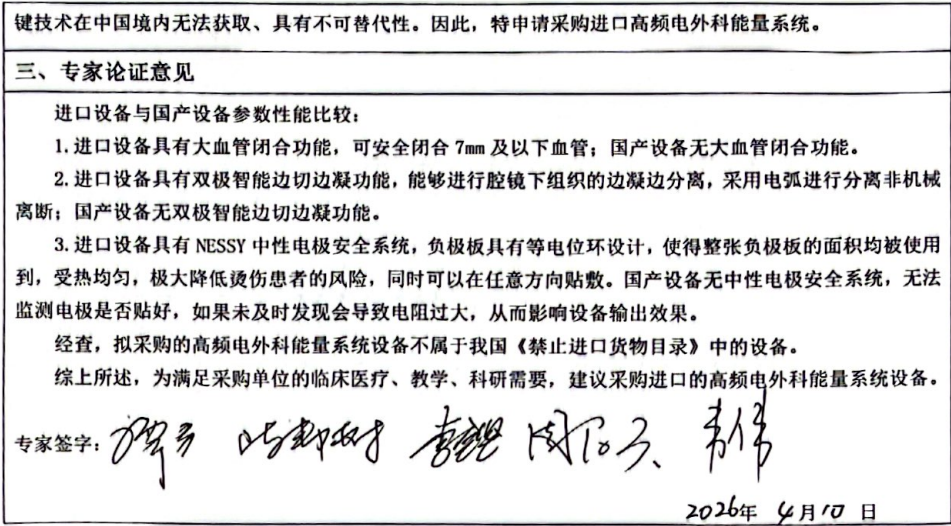 键技术在中国境内无法获取、具有不可替代性。因此，特申请采购进口高频电外科能量系统。
三、专家论证意见
进口设备与国产设备参数性能比较：
1.进口设备具有大血管闭合功能，可安全闭合 7mm 及以下血管；国产设备无大血管闭合功能。
2.进口设备具有双极智能边切边凝功能，能够进行腔镜下组织的边凝边分离，采用电弧进行分离非机械
离断；国产设备无双极智能边切边凝功能。
3.进口设备具有 NESSY 中性电极安全系统，负极板具有等电位环设计，使得整张负极板的面积均被使用
到，受热均匀，极大降低烫伤患者的风险，同时可以在任意方向贴敷。国产设备无中性电极安全系统，无法
监测电极是否贴好，如果未及时发现会导致电阻过大，从而影响设备输出效果。
经查，拟采购的高频电外科能量系统设备不属于我国《禁止进口货物目录》中的设备。
综上所述，为满足采购单位的临床医疗、教学、科研需要，建议采购进口的高频电外科能量系统设备。
专家签字：
2026年 4月10日